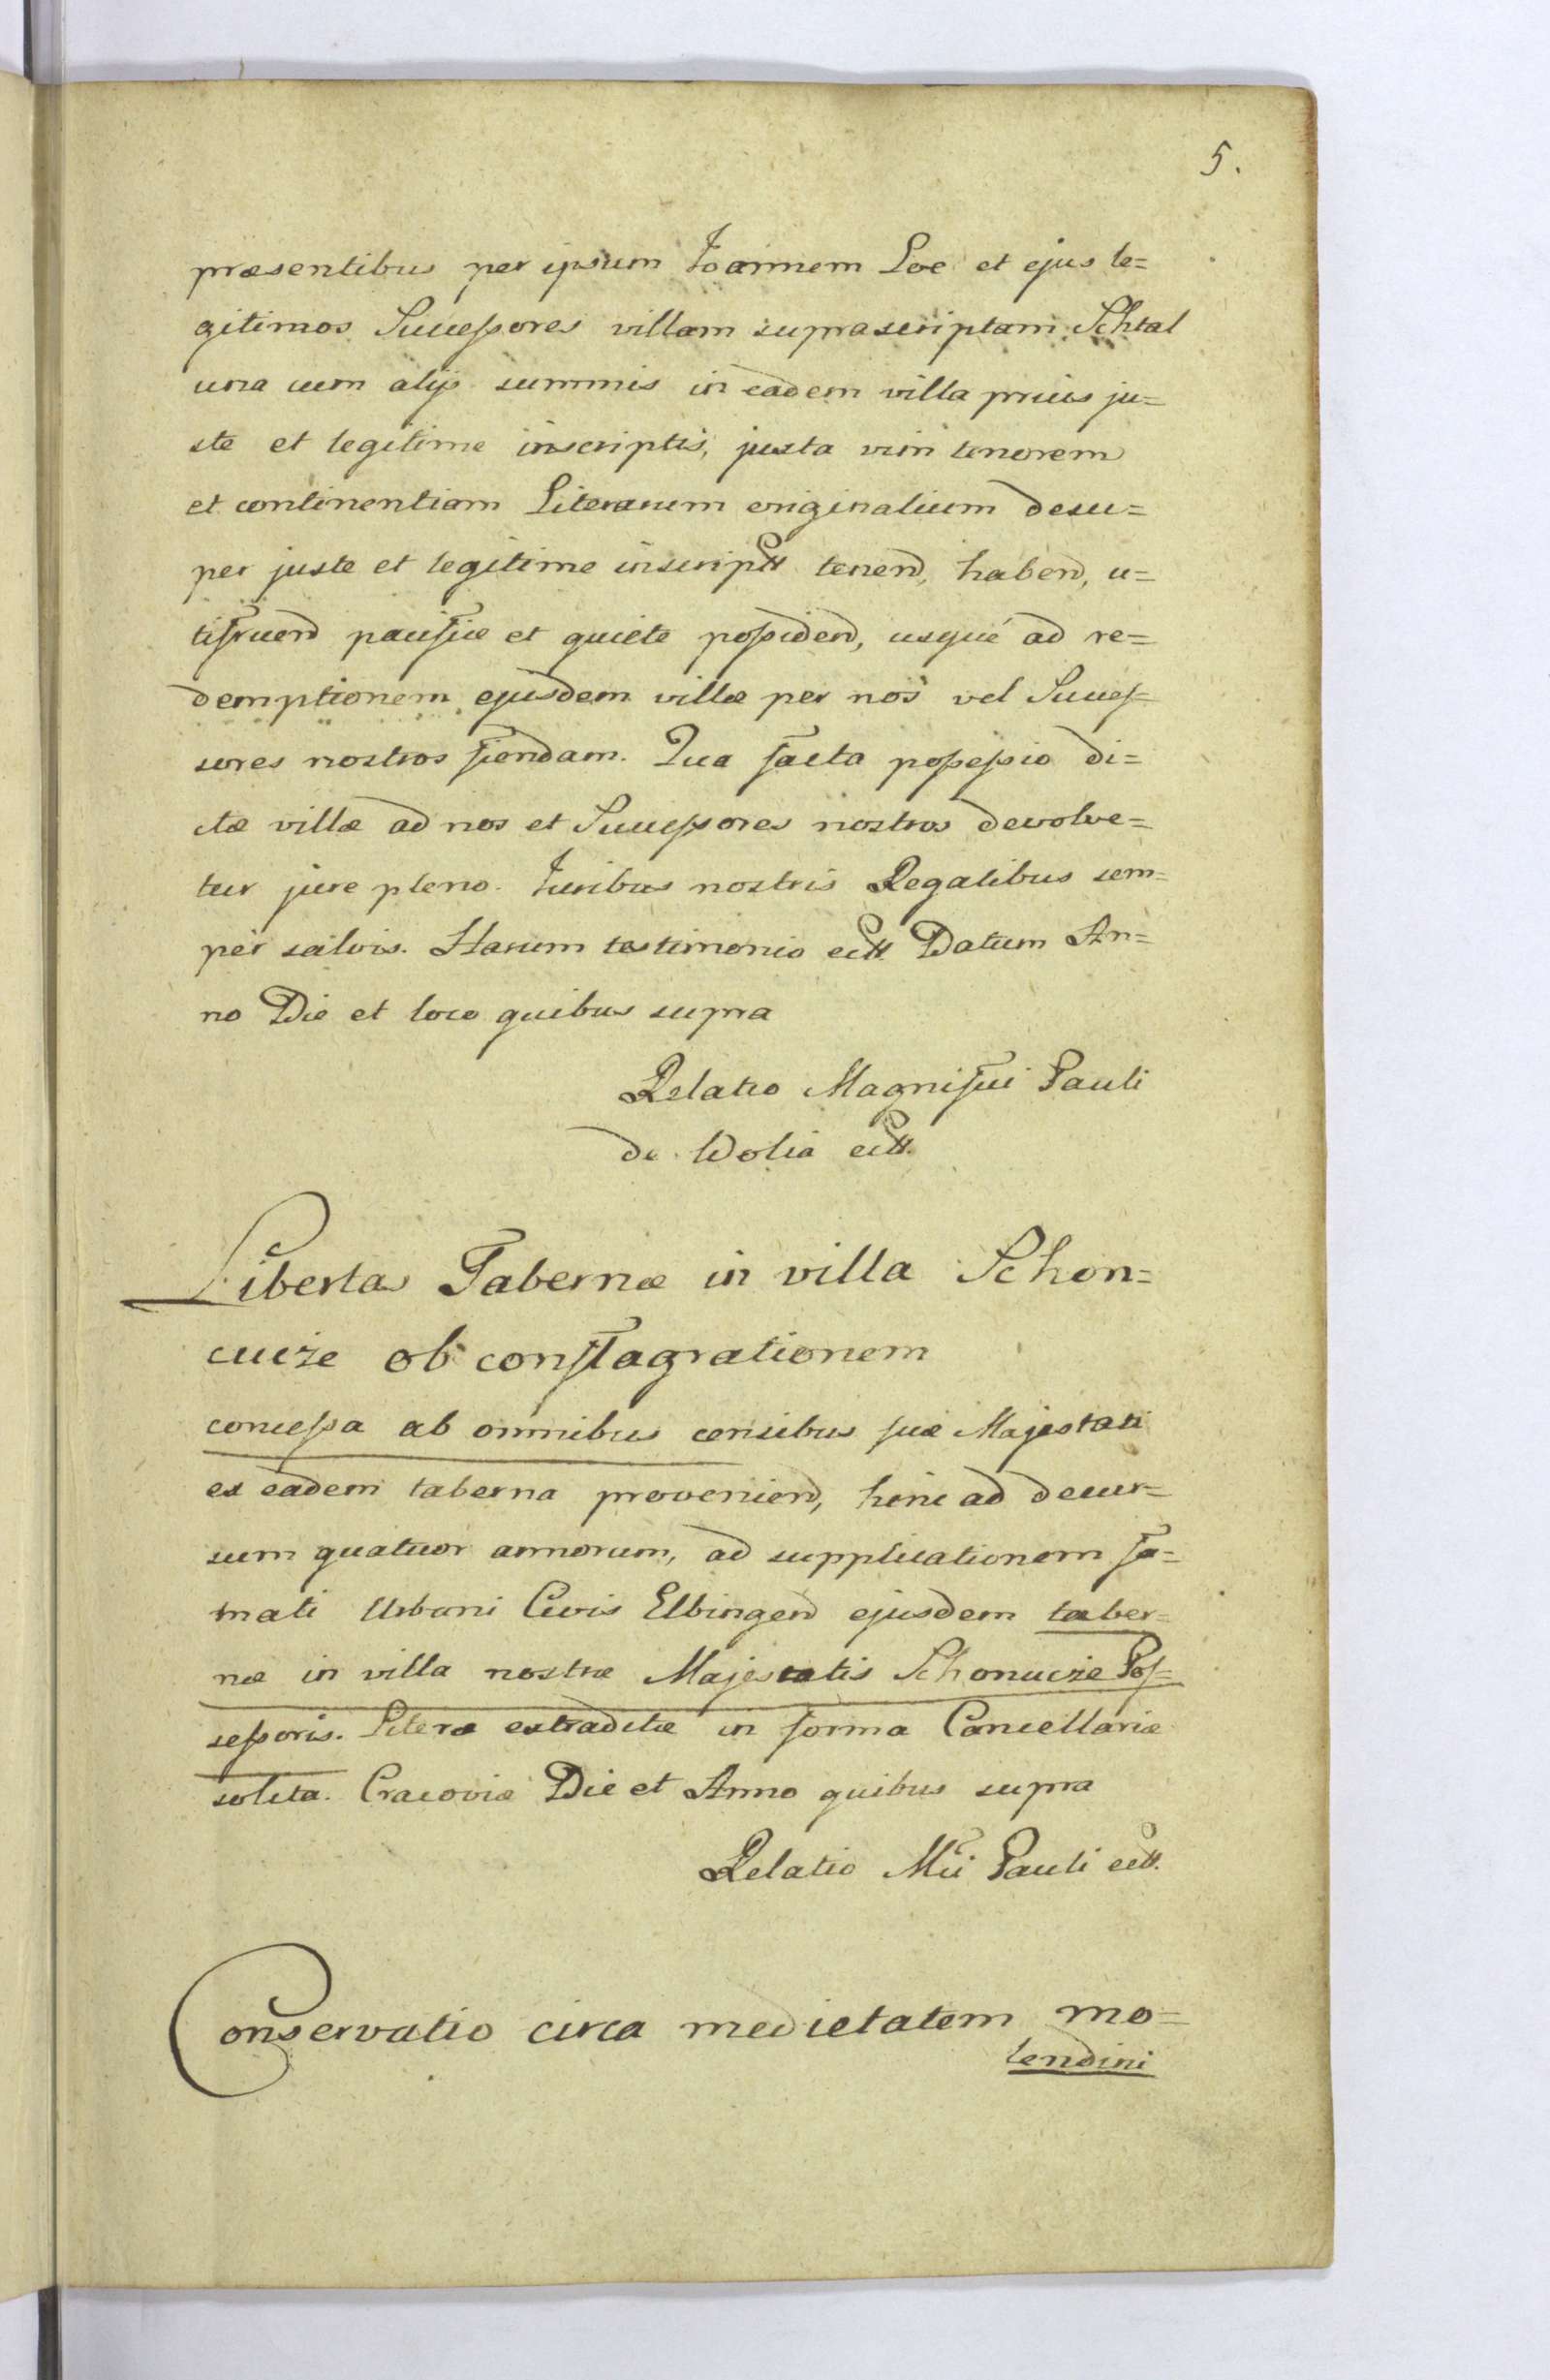 5.
præsentibus per ipsum Joannem Loe et ejus le=
gitimos Successores villam suprascriptam Schtal
una cum alijs summis in eadem villa prius ju=
ste et legitime inscriptis, juxta vim tenorem
et continentiam Literarum originalium desu=
per juste et legitime inscriptt tenend, habend, u=
tifruend pacifice et quiete possidend, usque ad re=
demptionem ejusdem villæ per nos vel Succes=
sores nostros fiendam. Qua facta possessio di=
ctæ villæ ad nos et Successores nostros devolve=
tur jure pleno. Juribus nostris Regalibus sem=
per salvis. Harum testimonio ectt. Datum An=
no Die et loco quibus supra
Relatio Magnifici Pauli
de Wolia ectt.
Libertas Tabernæ in villa Schon=
cucze ob conflagrationem
concessa ab omnibus censibus suæ Majestati
ex eadem taberna proveniend, hinc ad decur=
sum quatuor annorum, ad supplicationem fa=
mati Urbani Civis Elbingend ejusdem taber=
næ in villa nostræ Majestatis Schonucze Pos=
sessoris. Literæ extraditæ in forma Cancellariæ
solita. Cracoviæ Die et Anno quibus supra
Relatio Mci Pauli ectt.
Conservatio circa medietatem mo=
lendini